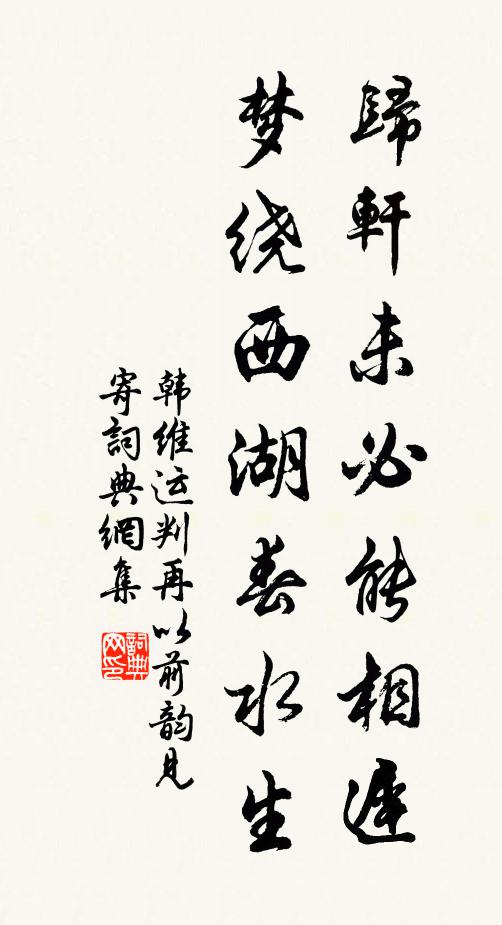 歸軒未必能相遲
梦绕西湖春水生
韩维运判再以前韵见
寄詞典網集
詞典
网印